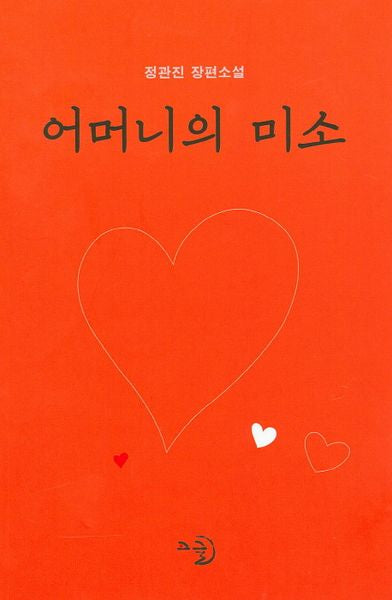 정관진 장편소설
어머니의 미소
그글